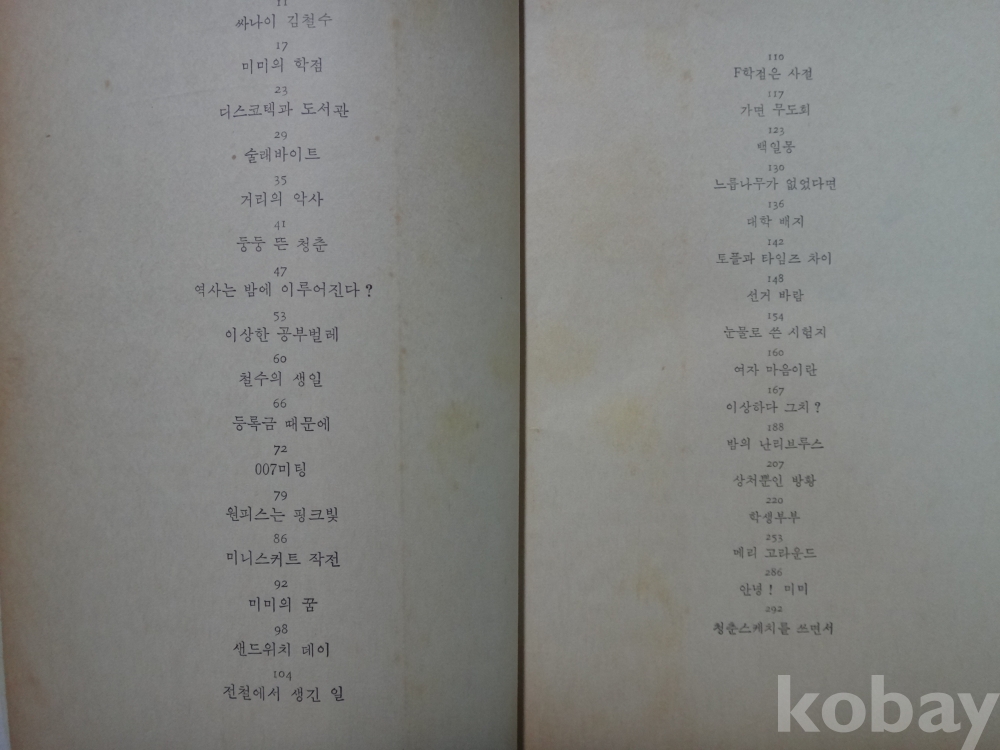 11
싸나이 김철수
17
미미의 학점
23
디스코텍과 도서관
29
술래바이트
35
거리의 악사
41
둥둥 뜬 청춘
47
역사는 밤에 이루어진다?
53
이상한 공부벌레
60
철수의 생일
66
등록금 때문에
72
007미팅
79
원피스는 핑크빛
86
미니스커트 작전
92
미미의 꿈
98
샌드위치 데이
104
전철에서 생긴 일
110
F학점은 사절
117
가면 무도회
123
백일몽
130
느릅나무가 없었다면
136
대학 배지
142
토플과 타임즈 차이
148
선거 바람
154
눈물로 쓴 시험지
160
여자 마음이란
167
이상하다 그치?
188
밤의 난리브루스
207
상처뿐인 방황
220
학생부부
253
메리 고라운드
286
안녕! 미미
292
청춘스케치를 쓰면서
kobay